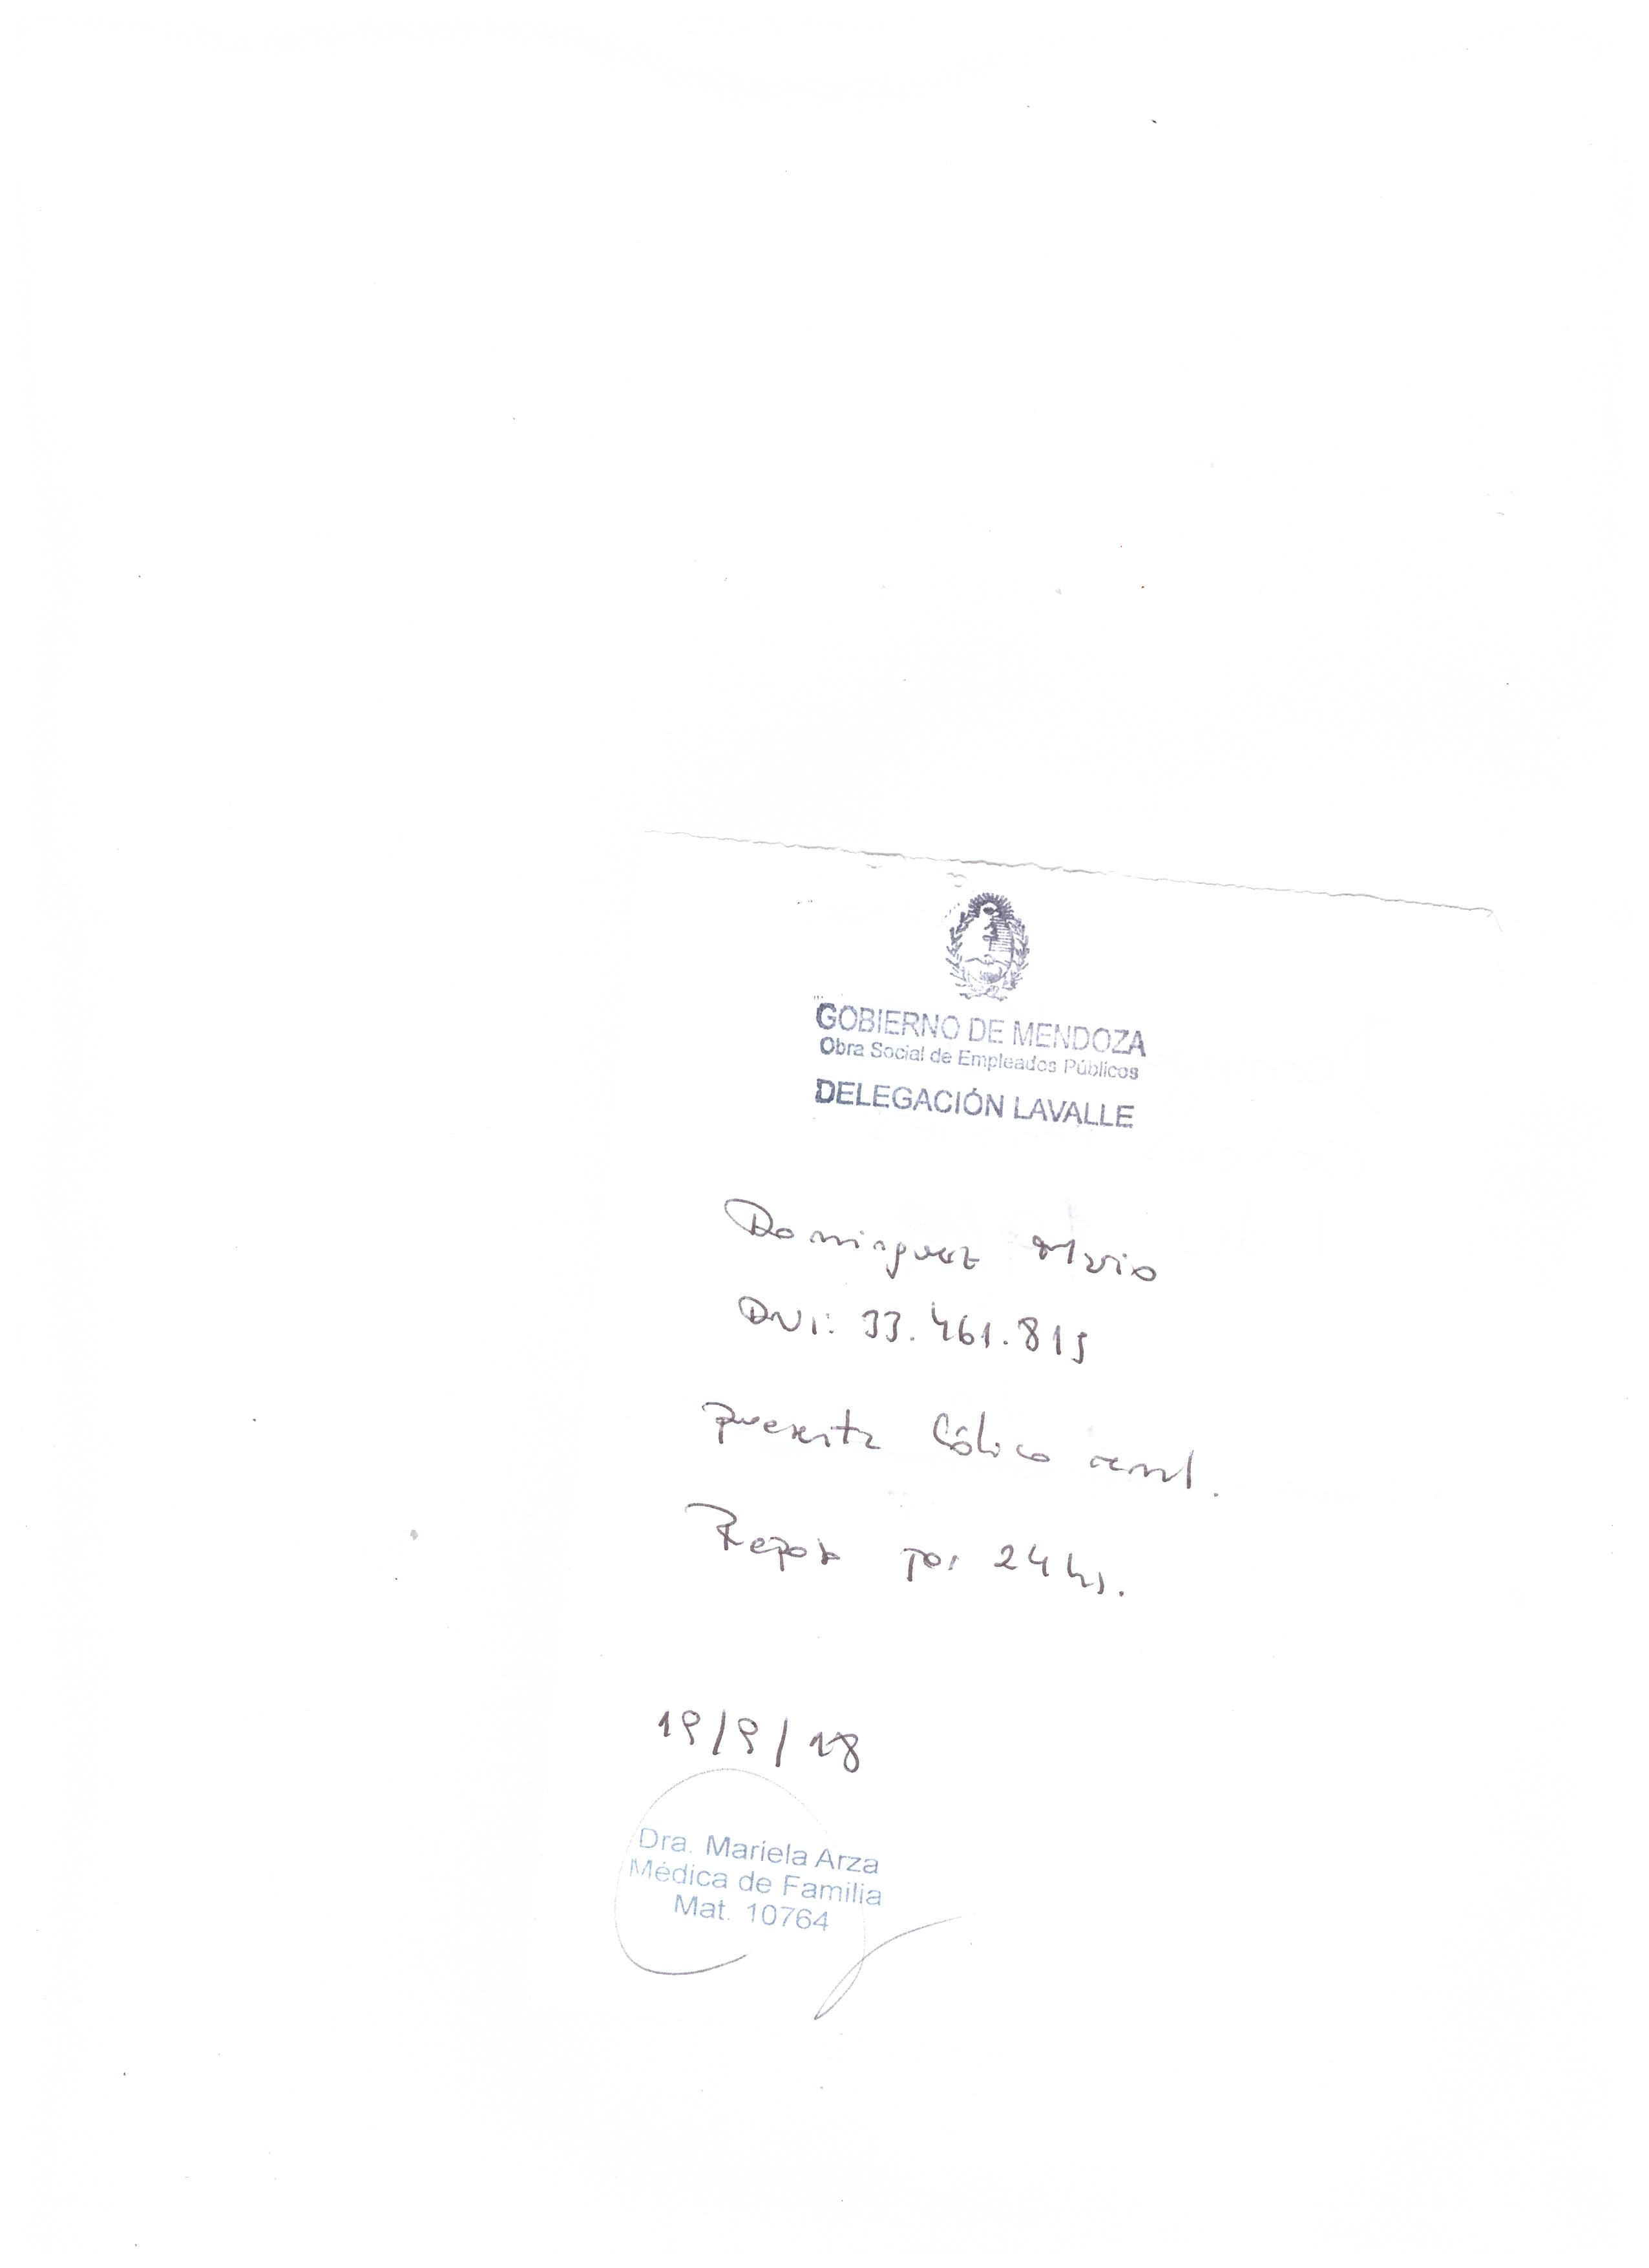 GOBIERNO DE MENDOZA
Obra Social de Empleados Públicos
DELEGACIÓN LAVALLE
Dominguez
DNI: 33.461.815
presenta Cólico renal.
Reposo por 24 hs.
19/9/18
Dra. Mariela Arza
Médica de Familia
Mat. 10764